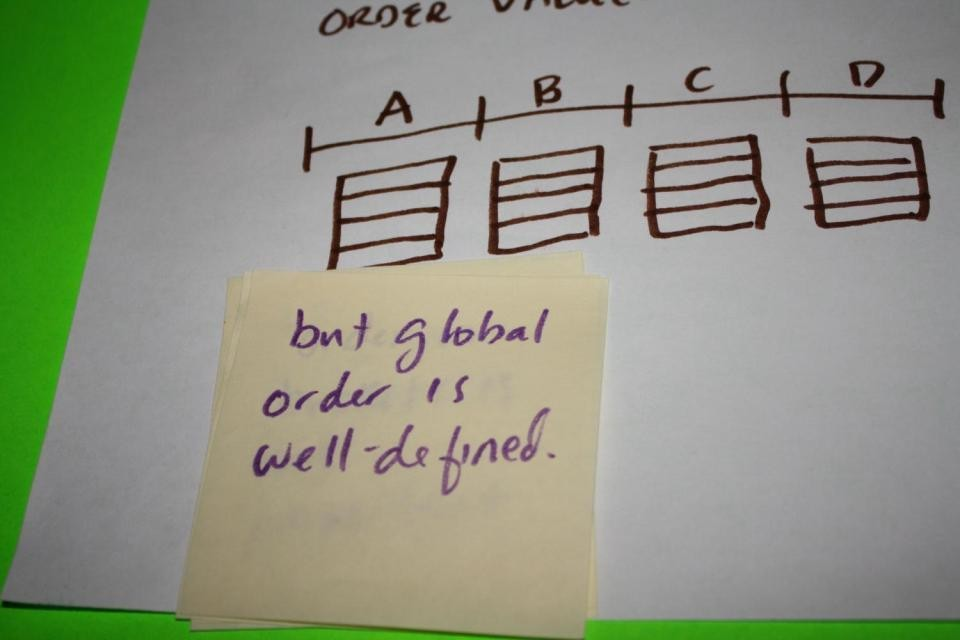 ORDER VALUE
A B C D
but global
order is
well-defined.